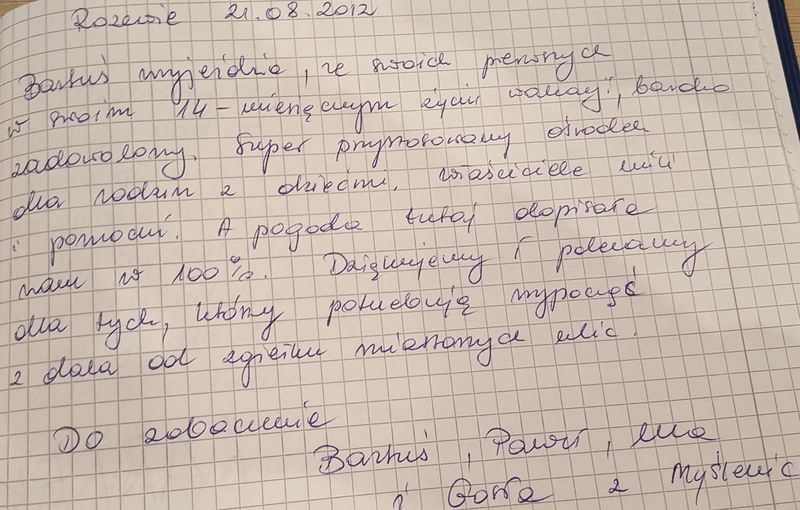 Rozewie 21.08.2012
Bartuś wyjeżdża, ze swoich pierwszych
w swoim 14-miesięcznym życiu wakacji, bardzo
zadowolony. Super przystosowany ośrodek
dla rodzin z dziećmi. Właściciele mili
i pomocni. A pogoda tutaj dopisała
nam w 100%. Dziękujemy i polecamy
dla tych, którzy potrzebują wypocząć
z dala od zgiełku miastowych ulic.
Do zobaczenia
Bartuś, Paweł, Ewa
i Gosia z Myślenic